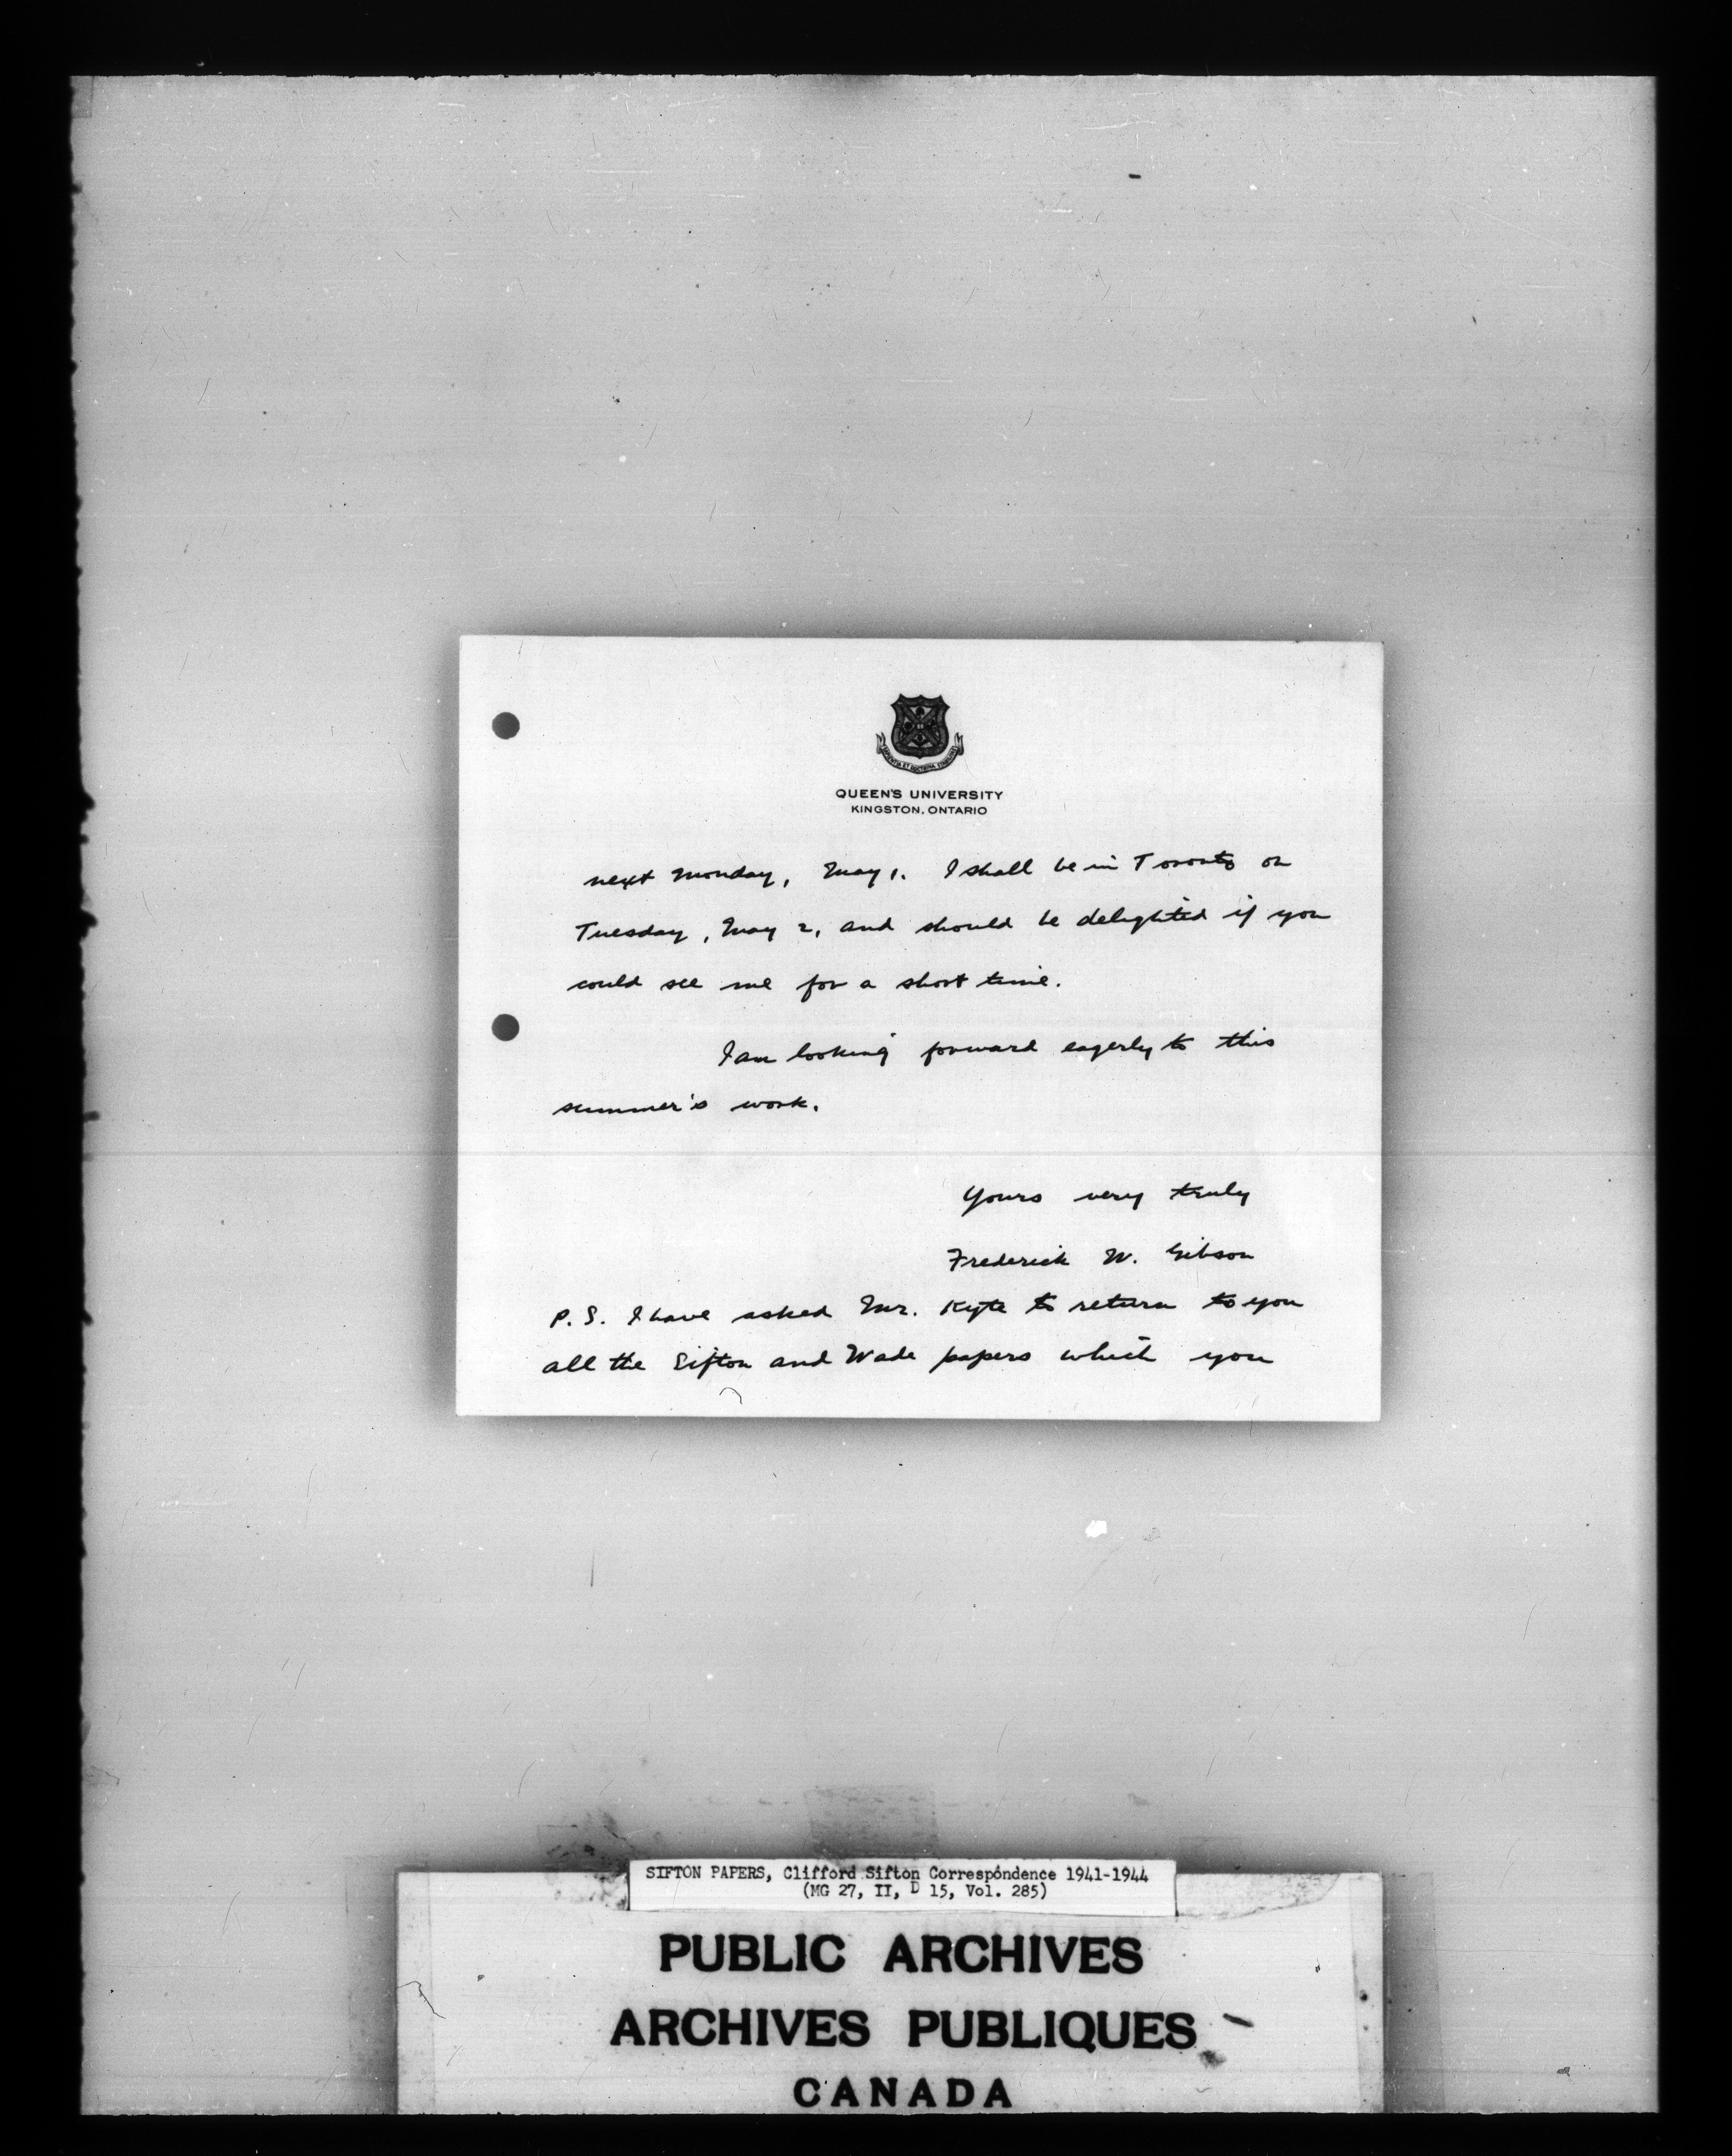 SAPIENTIA ET DOCTRINA STABILITAS
QUEEN'S UNIVERSITY
KINGSTON, ONTARIO
next Monday, May 1. I shall be in Toronto on
Tuesday, May 2, and should be delighted if you
could see me for a short time.
I am looking forward eagerly to this
summer's work.
Yours very truly
Frederick W. Gibson
P.S. I have asked Mr. Kyte to return to you
all the Sifton and Wade papers which you
SIFTON PAPERS, Clifford Sifton Correspondence 1941-1944
(MG 27, II, D 15, Vol. 285)
PUBLIC ARCHIVES
ARCHIVES PUBLIQUES
CANADA